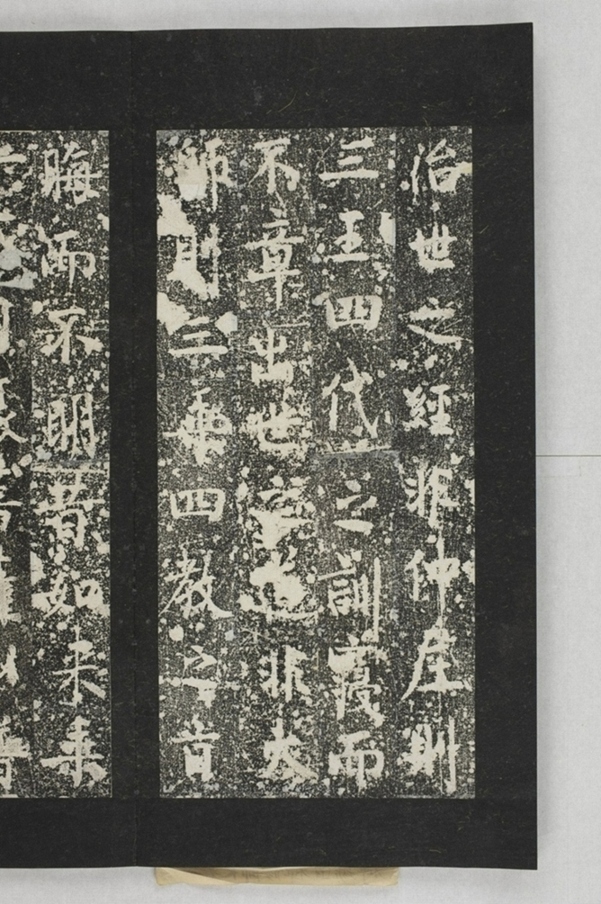 治世之經非仲尼則
三王四代之訓寢而
不章出世之道非大
師則三乘四教之旨
晦而不明昔如来乘